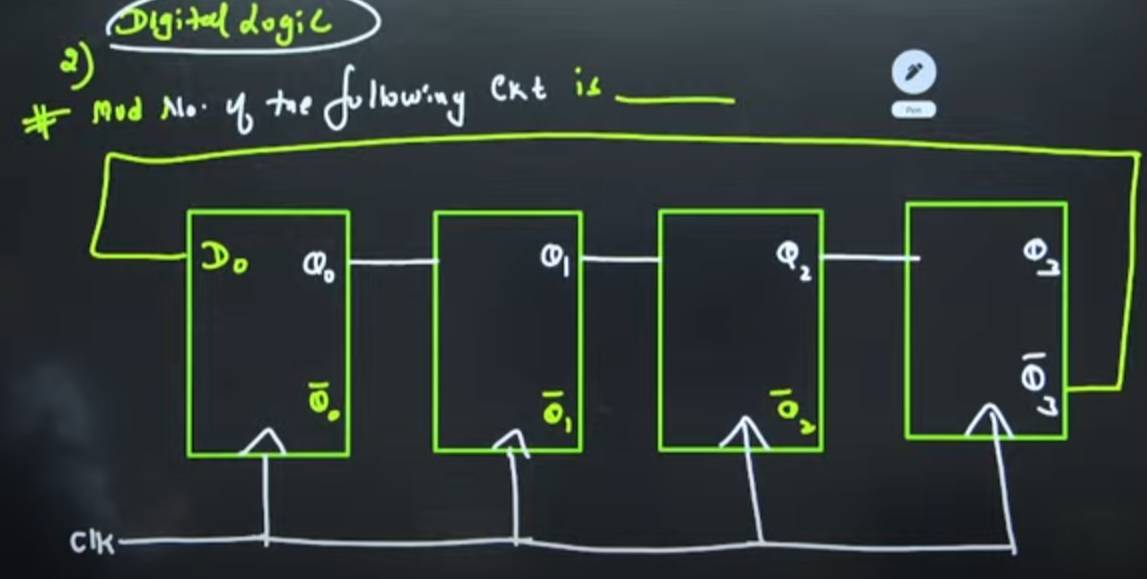 Digital Logic
2)
# Mod No. of the following Ckt is ______
D₀ Q₀ Q₁ Q₂ Q₃
Q̅₀ Q̅₁ Q̅₂ Q̅₃
Clk
Pen